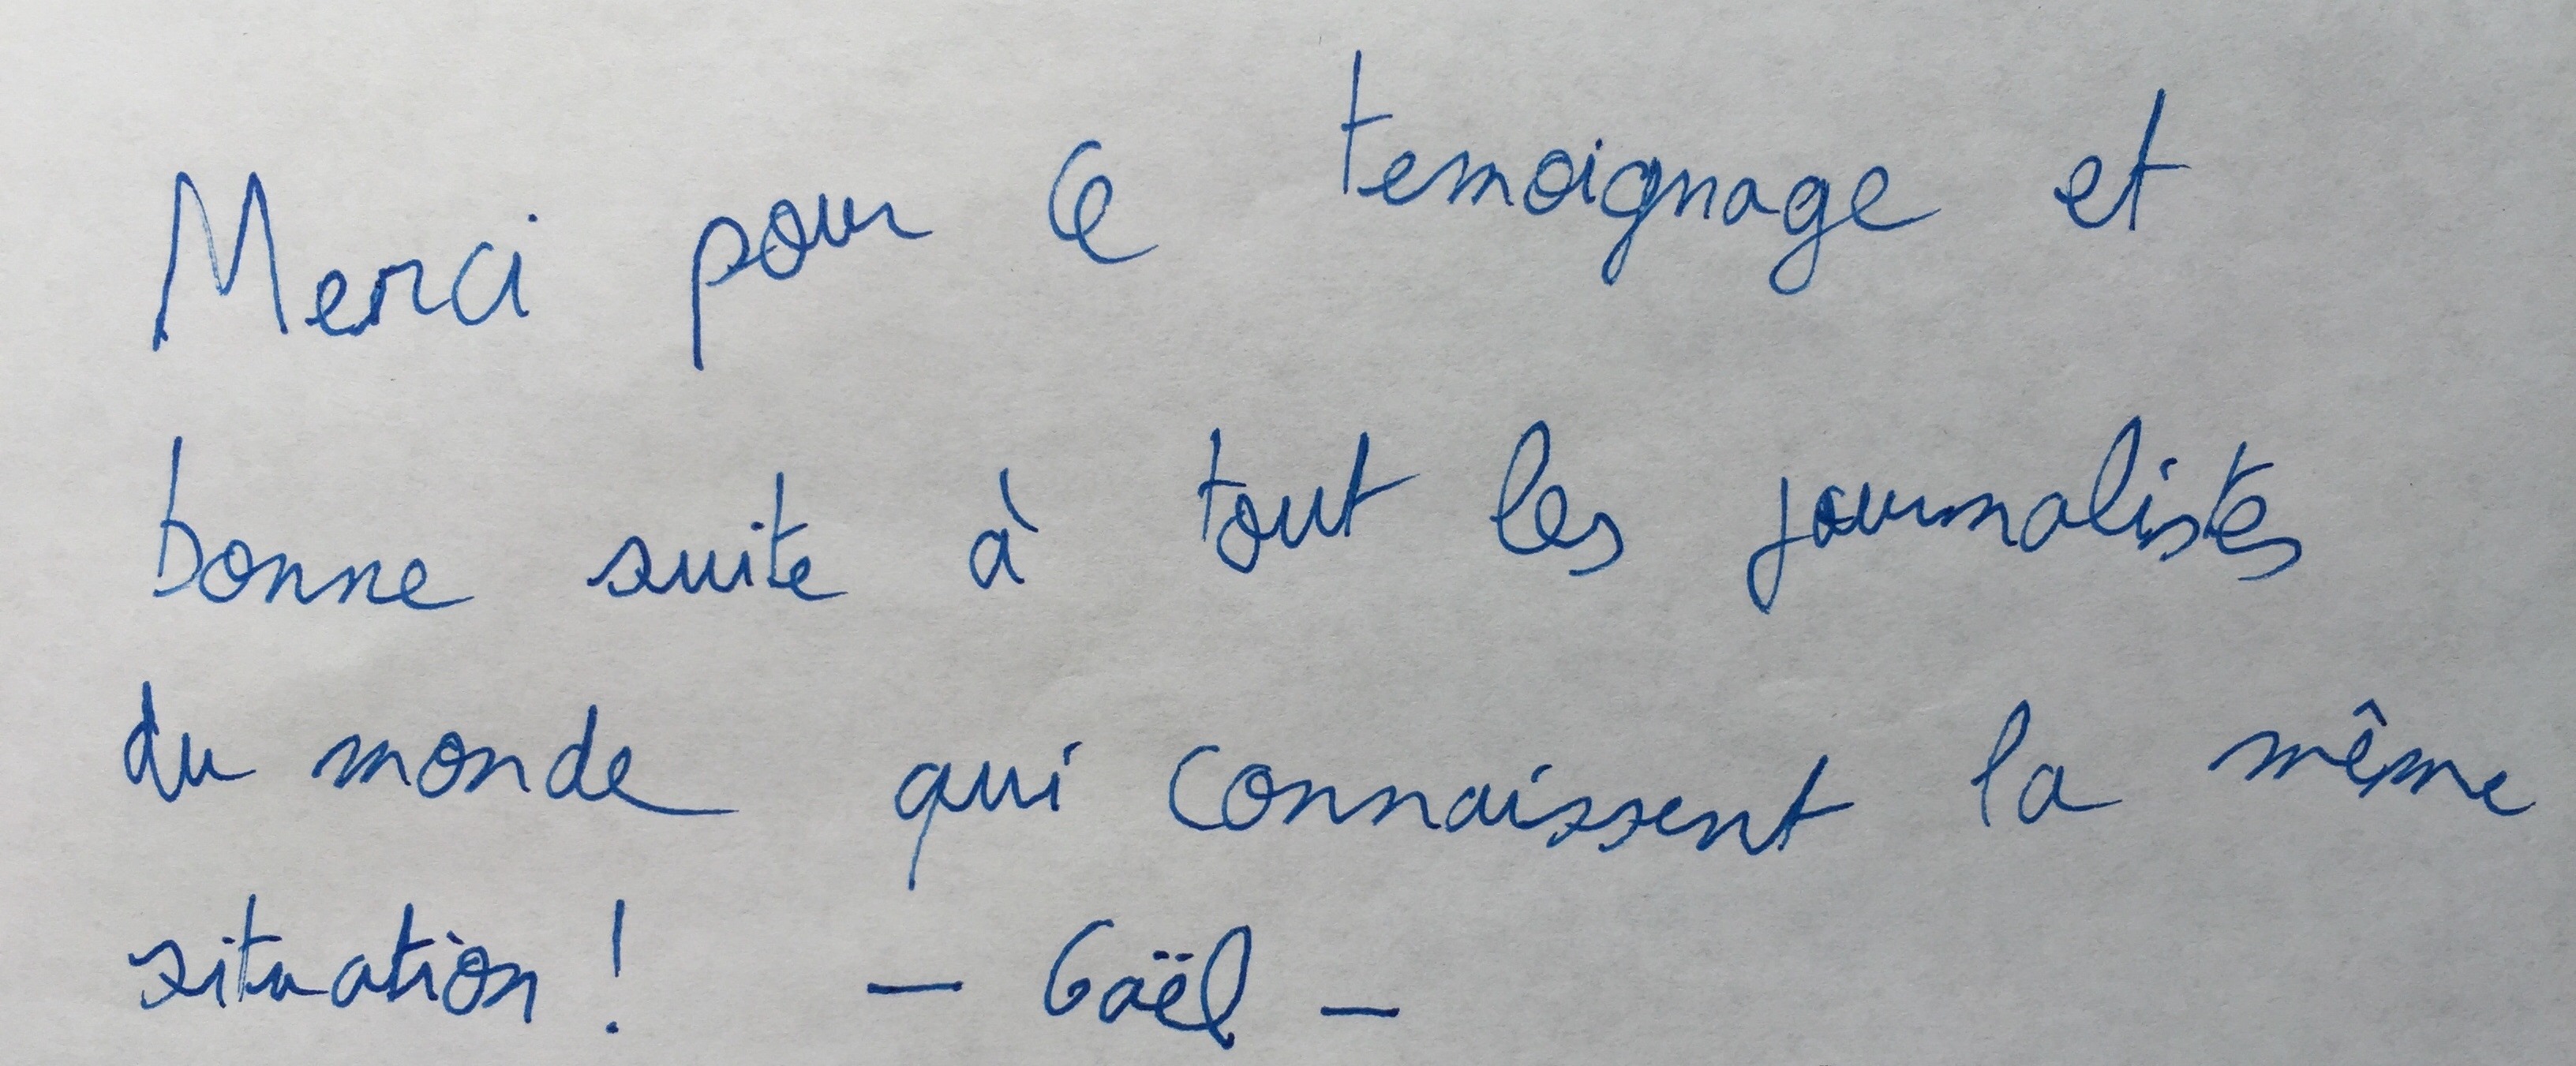 Merci pour ce temoignage et
bonne suite à tout les journalistes
du monde qui connaissent la même
situation ! — Gaël —